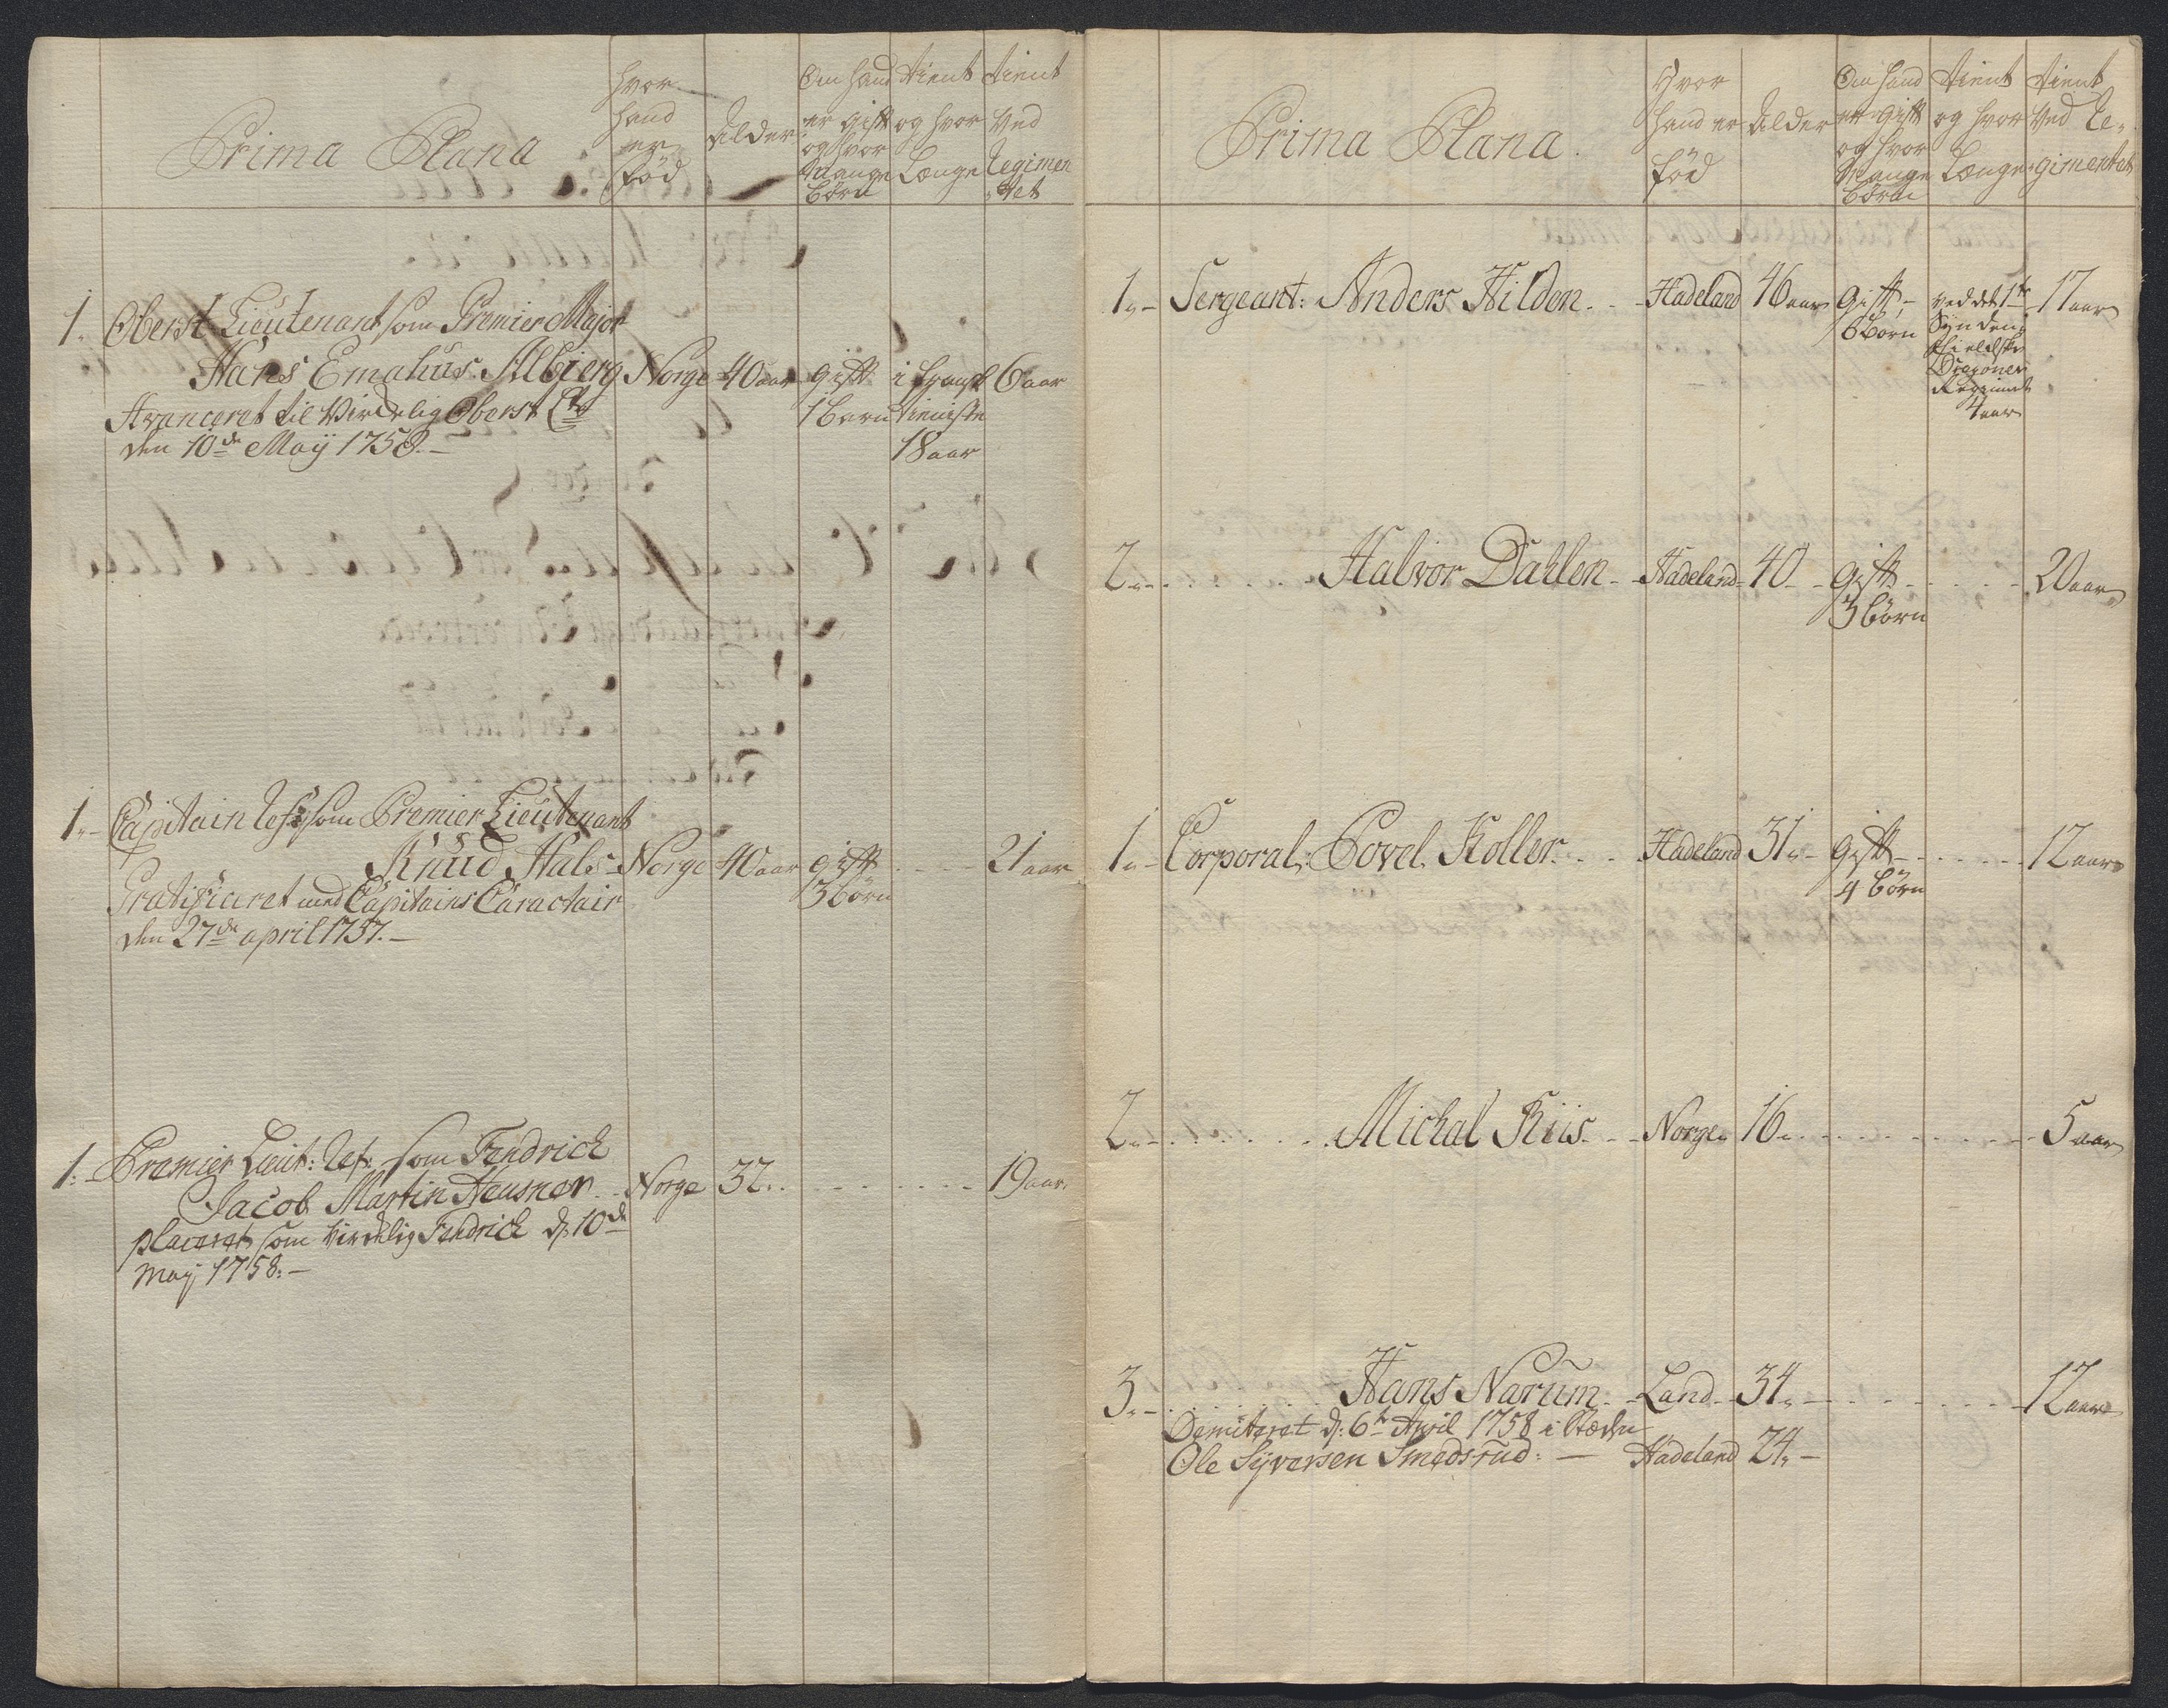 Prima Plana
hvor
hand
er
født
Alder
Om hand
er gift
og hvor
Mange
børn
tient
og hvor
Længe
tient
Ved
Regimen
tet
1. Oberst Lieutenant som Premier Major
Hans Emahus Albierg Norge 40 aar gift i fransk 6 aar
1 barn tieniste
18 aar
Avanceret til Virkelig Oberst Lt
den 10de Maÿ 1758. -
1.- Capitain Ref: som Premier Lieutenant
Knud Hals - Norge 40 aar gift - - - 21 aar
3 börn
Gratificeret med Capitains Caractair
den 27de april 1757. -
1. Premier Lieut: Ref: som Fendrich
Jacob Martin Neusner - Norge 32. - - - 19 aar
placeret som virkelig Fendrich d. 10de
Maÿ 1758: -
Prima Plana.
Hvor
hand er
född
Alder
Om hand
er gift
og hvor
Mange
börn
tient
og hvor
Længe
tient
Ved Re-
gimentet
1.- Sergeant: Anders Hilden. - Hadeland 46 aar gift, - ved det 1te 17 aar
6 Börn Synden-
fieldske
Dragoner
Regiment
4 aar
2. - - - Halvor Dahlen - Hadeland - 40 - gift - - - 20 aar
3 börn
1.- Corporal: Povel Koller. - Hadeland 31.- gift - - - 12 aar
4 börn
2.- - - - Michal Kiis. - Norge 16. - - - 5 aar
3.- - - - Hans Narum. - Land - 34. - - - 12 aar
Demiteret d. 6te April 1758 i Stæden
Ole Syversen Smedsrud: - Hadeland 24. -